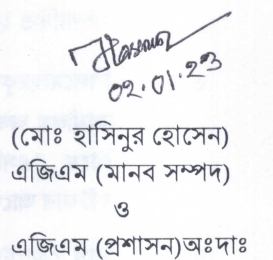 ০২.০১.২৩
(মোঃ হাসিনুর হোসেন)
এজিএম (মানব সম্পদ)
ও
এজিএম (প্রশাসন)অঃদাঃ